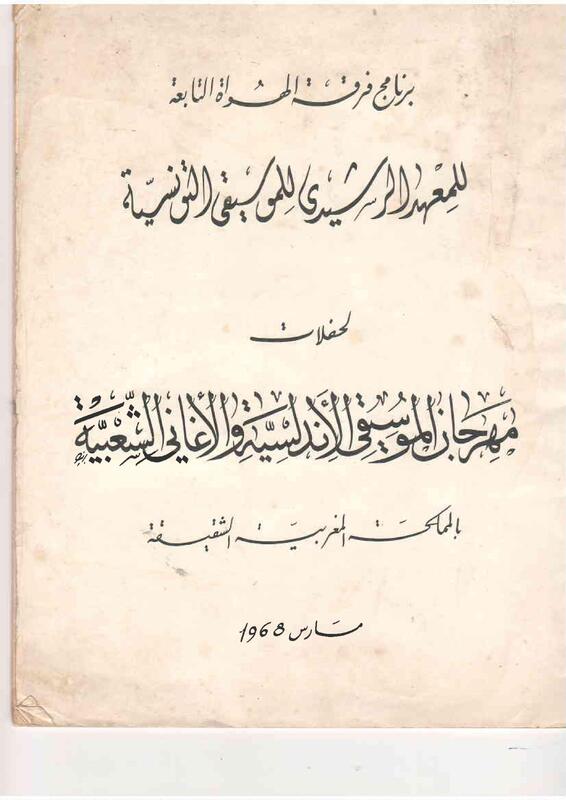 برنامج فرقة الهواة التابعة
للمعهد الرشيدي للموسيقى التونسية
لحفلات
مهرجان الموسيقى الأندلسية والأغاني الشعبية
بالمملكة المغربية الشقيقة
مارس 1968